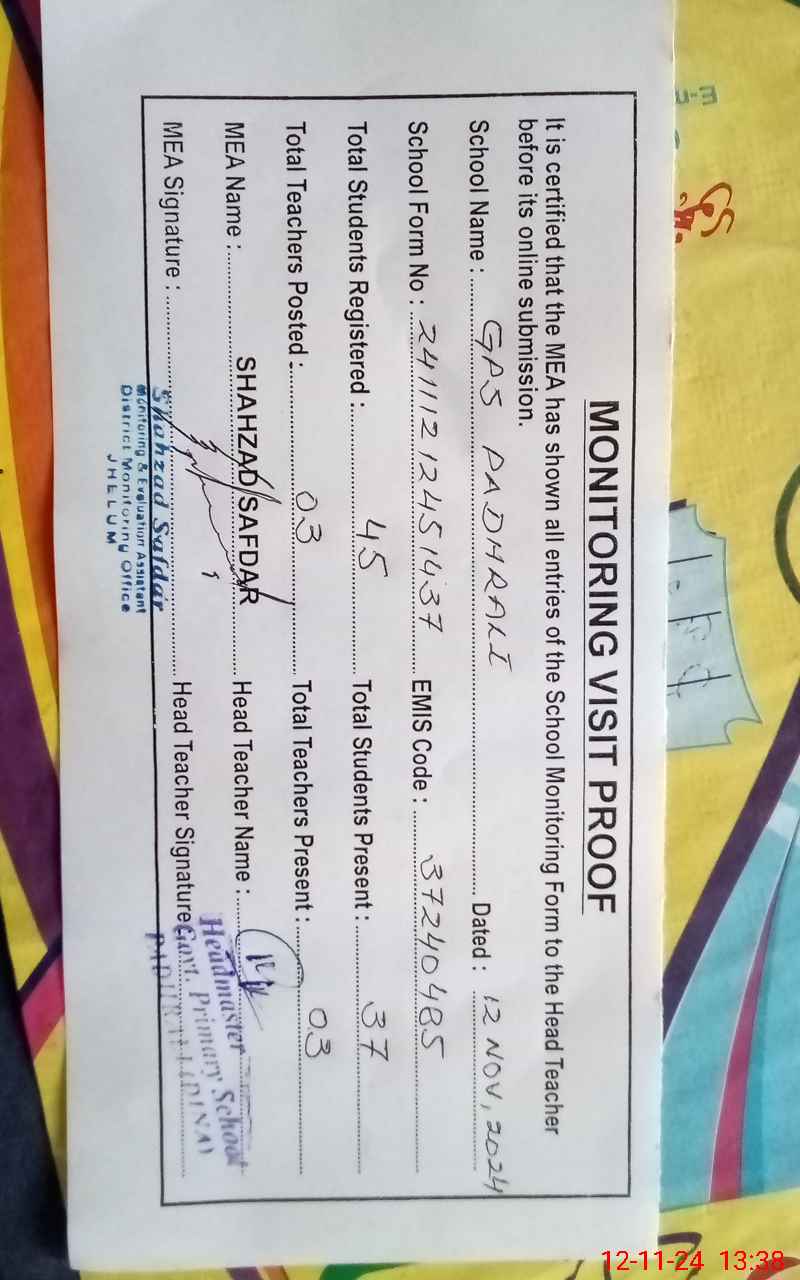 MONITORING VISIT PROOF
It is certified that the MEA has shown all entries of the School Monitoring Form to the Head Teacher
before its online submission.
School Name : GPS PADHRALI Dated : 12 NOV, 2024
School Form No : 24111212451437 EMIS Code : 37240485
Total Students Registered : 45 Total Students Present : 37
Total Teachers Posted : 03 Total Teachers Present : 03
MEA Name : SHAHZAD SAFDAR Head Teacher Name :
MEA Signature : Head Teacher Signature
Shahzad Safdar
Monitoring & Evaluation Assistant
District Monitoring Office
JHELUM
Headmaster
Govt. Primary School
12-11-24 13:38